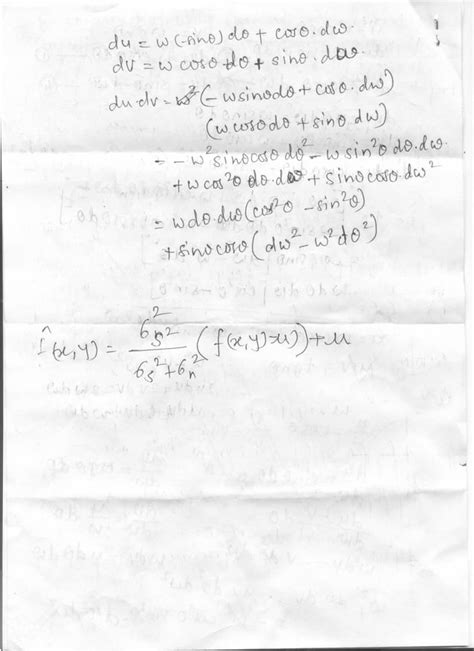 du = w(-sinθ)dθ + cosθ.dw.
dv = w cosθ dθ + sinθ. dw
du.dv = (-w sinθ dθ + cosθ. dw)
(w cosθ dθ + sinθ dw)
= -w² sinθ cosθ dθ² - w sin²θ dθ. dw.
+ w cos²θ dθ. dw + sinθ cosθ. dw²
= w dθ. dw (cos²θ - sin²θ)
+ sinθ cosθ (dw² - w² dθ²)
f̂(x,y) = σs² / (σs² + σn²) (f(x,y) - u) + u